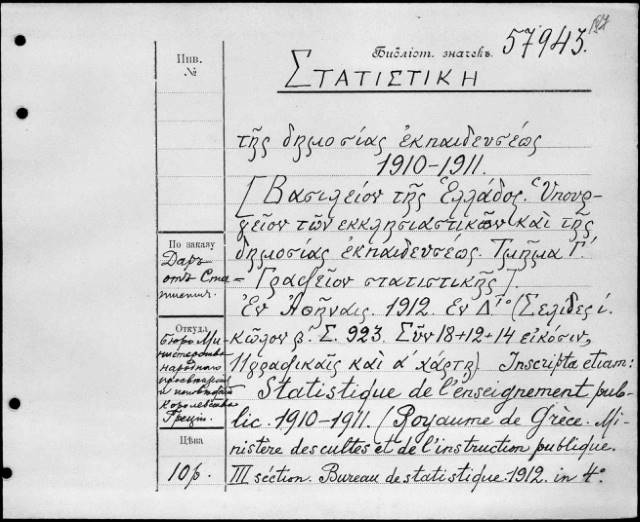 Библіот. значекъ. 57943.
Инв. №
ΣΤΑΤΙΣΤΙΚΗ
τῆς δημοσίας ἐκπαιδευσέως
1910-1911.
[Βασιλείον τῆς Ἑλλάδος. Ὑπουρ-
γεῖον τῶν ἐκκλησιαστικῶν καὶ τῆς
δημοσίας ἐκπαιδευσέως. Τμῆμα Γ΄.
Γραφεῖον στατιστικῆς].
Ἐν Ἀθήναις. 1912. Ἐν Δ΄. (Σελίδες ί.
κῶλον β΄. Σ. 923. Σῦν 18+12+14 εἰκόσιν,
καὶ α΄ χάρτῃ) Inscripta etiam:
Statistique de l'enseignement pub-
lic. 1910-1911. (Royaume de Grèce. Mi-
nistère des cultes et de l'instruction publique.
III séction. Bureau de statistique. 1912. in 4°.
По заказу
Даръ
отъ Ста-
Откуда.
бюро Ми-
нистерства
народнаго
просвѣщенія
и
Королевства
Греціи.
Цѣна
10р.